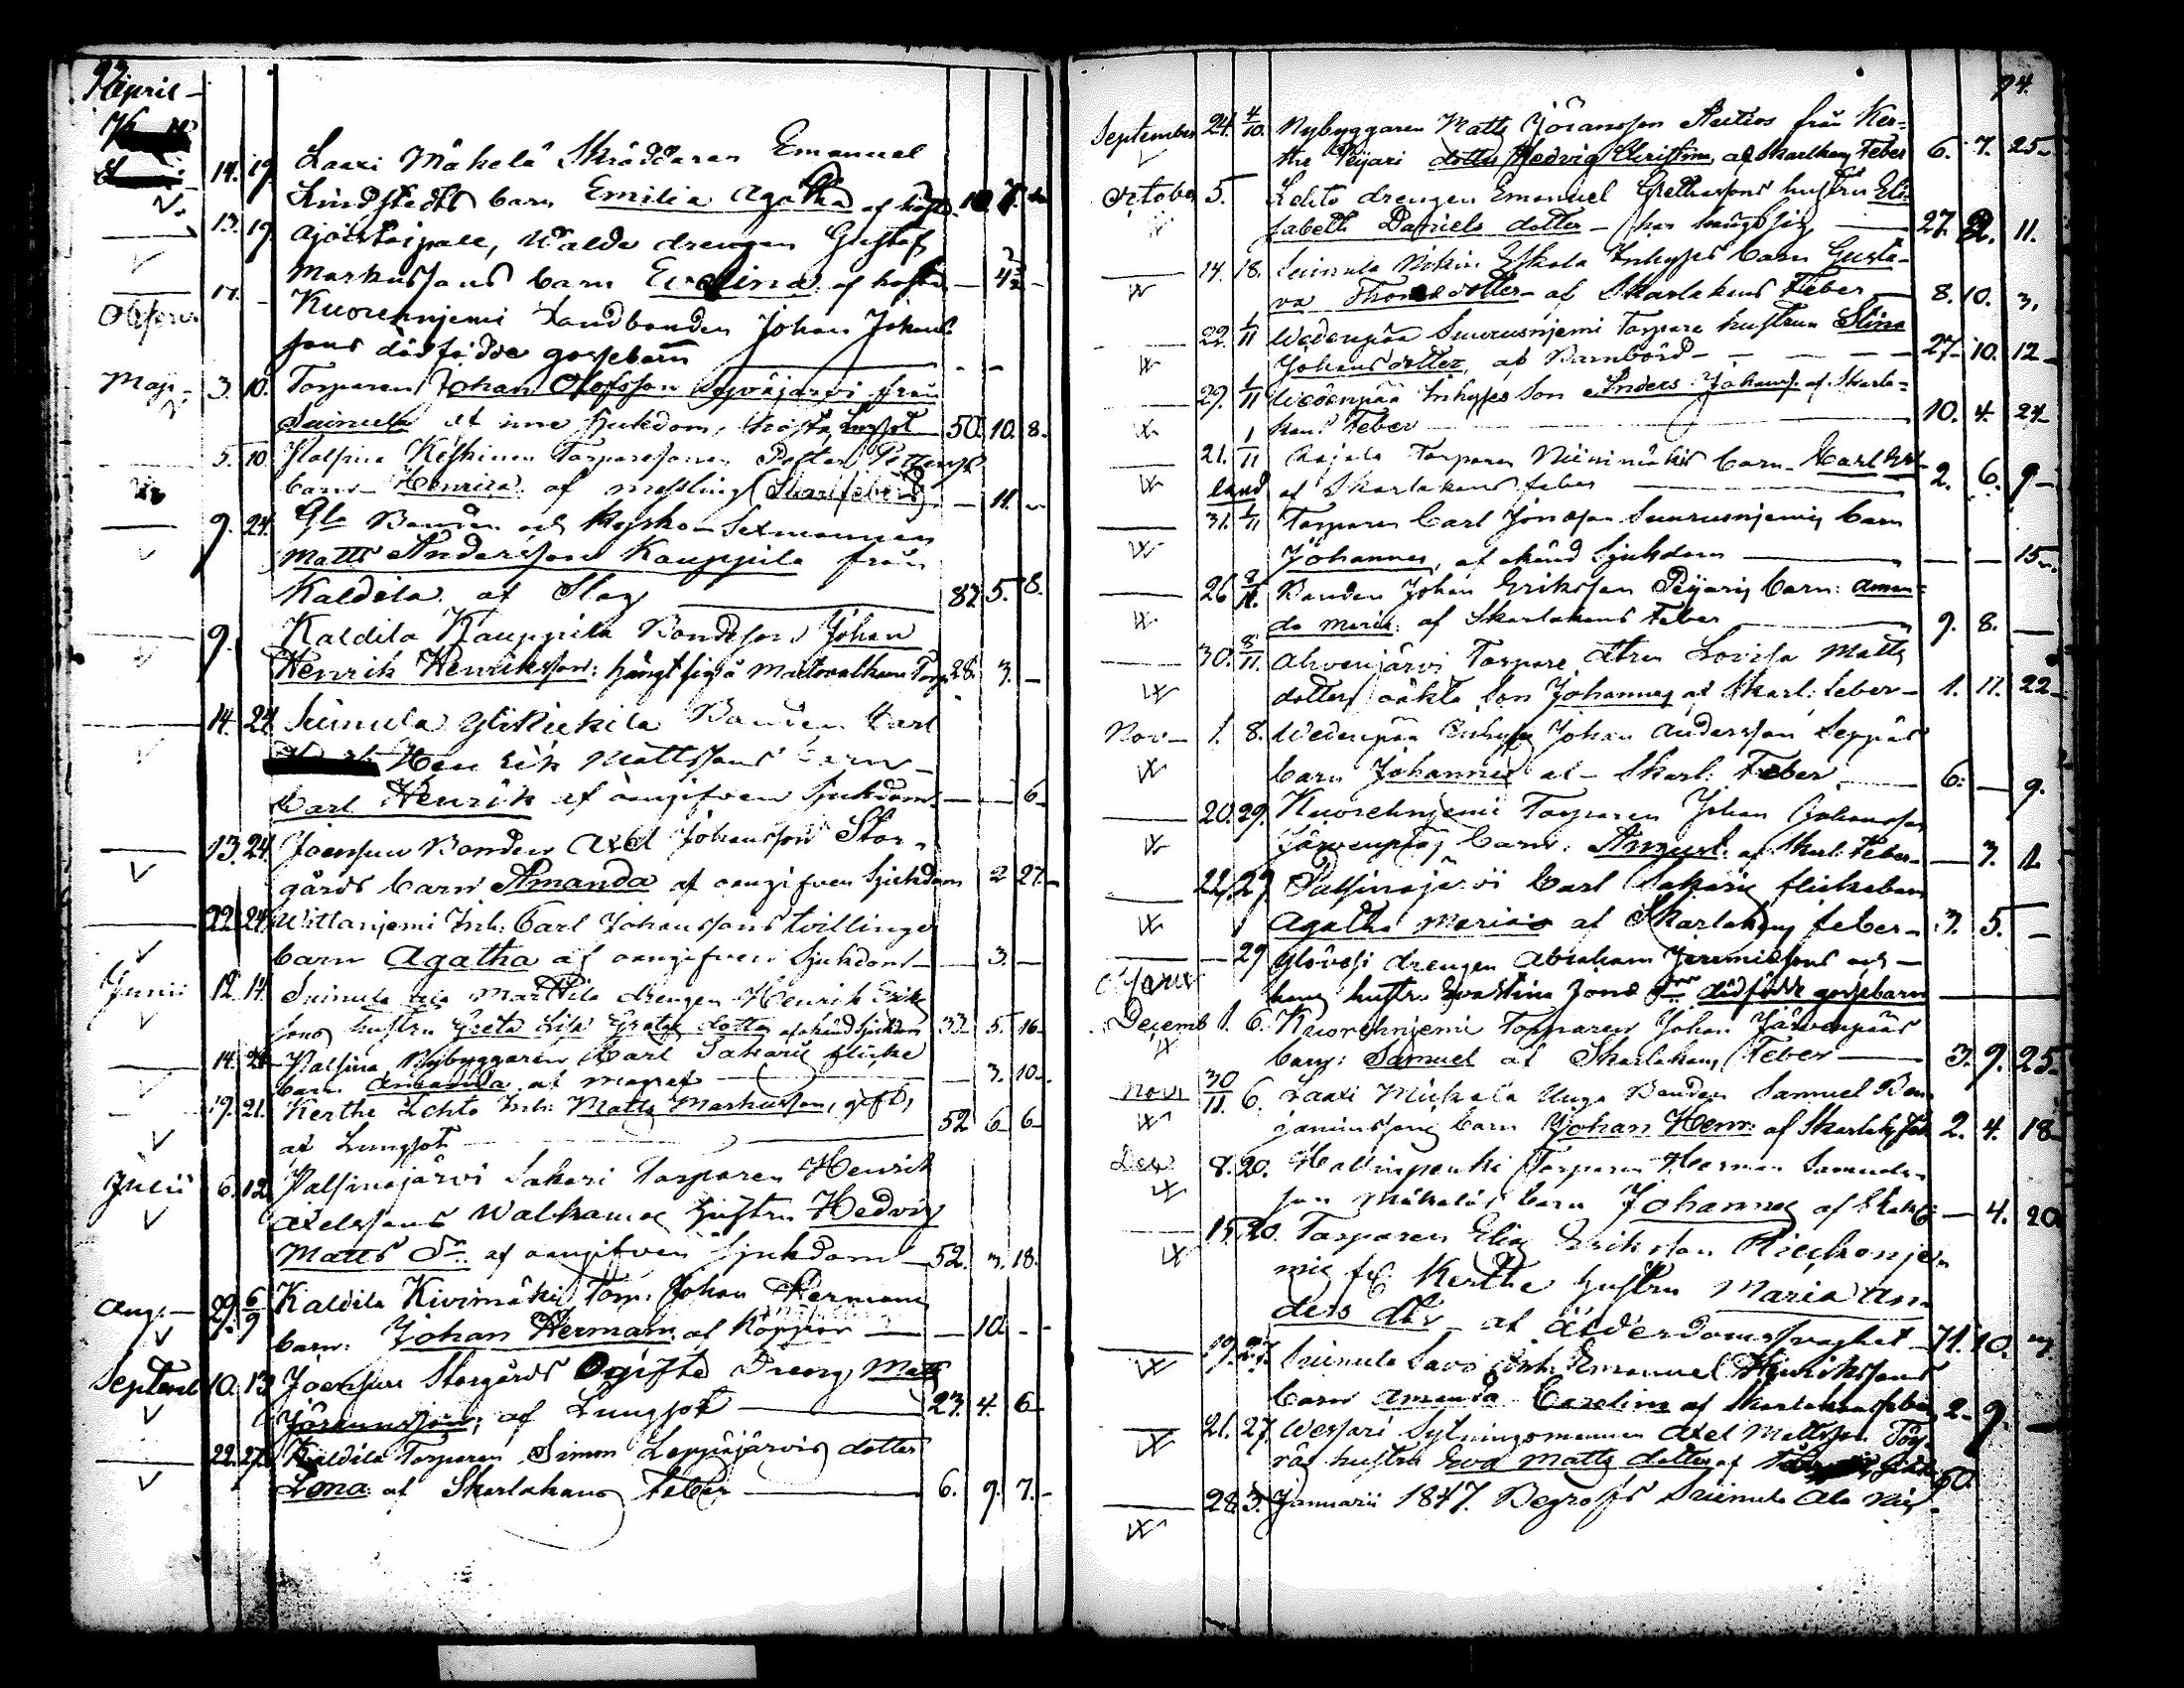 93.
April
14. 19. Laaxi Mäkelä Skräddaren Emanuel
Lindstedts barn Emilia Agatha af
13. 19. drengen Gustaf
Markussons barn Evelina af hosta
17. Kuorehnjemi Landbonden Johan Johans
sons dödfödde gossebarn
Maji 3. 10. Torparen Johan Olofsson från
Suinula af inre sjukdom, hosta, lungsot 50. 10. 8.
5. 10. Palsina Keskinen Torparesonen Petter
barn Henrica af messling (Skarlfeber) 11.
9. 24. Gl. Bonden och Sexmannen
Matts Andersson Kauppila från
Kaldila af Slag 82. 5. 8.
9. Kaldila Kauppila Bondeson Johan
Henrik Henriksson: hängt sig å 28. 3.
14. 24. Suinula Bonden Carl
Henrik Mattssons barn
Carl Henrik af oangifven Sjukdom 6
13. 24. Joensuu Bonden Axel Johansson Stor-
gårds barn Amanda af oangifven Sjukdom 2 27.
22. 24. Wittanjemi Inh: Carl Johanssons tvillinge
barn Agatha af oangifven Sjukdom 3.
Junii 12. 14. Suinula ala Marttila drengen Henrik Eriks
sons hustru Greta Lisa dotter af okänd sjukdom 33. 5. 16
14. 24. Palsina Nybyggaren Carl Sakaris flicke
barn Amanda af magref 3. 10.
19. 21. Kerthe Lehto Inh: Matts Markusson, gift,
af Lungsot 52 6 6
Julii 6. 12. Palsinajärvi Sakari Torparen Henrik
Axelssons Walkamas hustru Hedvig
Matts Dr. af oangifven Sjukdom 52. 3. 18.
Aug. 29. 6/9 Kaldila Kivimäki Torp. Johan Hermans
barn: Johan Hermam af Koppor 10.
Septemb 10. 13 Joensuu Storgårds Ogifte Dreng Matts
af Lungsot 23. 4. 6
22. 27. Kaldila Torparen Simon Leppäjärvis dotter
Lena: af Skarlakans Feber 6. 9. 7.
94.
September 24. 4/10. Nybyggaren Matts Göransson från Ker-
the Peijari dotter Hedvig Christina, af Skarlkans Feber 6. 7. 25
October 5. Lehto drengen Emanuel hustru Eli-
sabeth Daniels dotter – har hängt sig 27. 2. 11.
14. 18. Suinula Eskola Inhyses barn Gusta-
va Thomædotter – af Skarlakans Feber 8. 10. 3.
22. 1/11 Wedenpää Suurusnjemi Torpare hustrun Stina
Johansdotter, af Barnbörd 27 10. 12
29. 1/11 Wedenpää Inhyses Son Anders Johans. af Skarla-
kans Feber 10. 4. 24
21. 1/11 Rajala Torparen Niinimäkis barn Carl
land af Skarlakans feber 2. 6. 9
31. 1/11 Torparen Carl Jonsson Suurusnjemis barn
Johannes, af okänd Sjukdom 15
26 8/11. Bonden Johan Eriksson Peijaris barn: Aman-
da Maria: af Skarlakans Feber 9. 8.
30. 8/11. Ahvenjärvi Torpare Lovisa Matts
dotters oäkta Son Johannes af Skarl: feber 1. 11. 22
Nov 1. 8. Wedenpää Inhyses Johan Andersson Seppäs
barn Johannes af Skarl. Feber 6. 9.
20. 29. Kuorehnjemi Torparen Johan Johansson
Järvenpääs barn: August: af Skarl: Feber 3.
22. 29. Palsinajärvi Carl Sakaris flickebarn
Agatha Maria af Skarlakans feber 3. 5.
29 drengen Abraham Jeremiessons och
hans hustru Evastina Jons Dr dödfödde gossebarn
Decemb 1. 6. Kuorehnjemi Torparen Johan Järvenpääs
barn: Samuel af Skarlakans Feber 3. 9. 25
Nov. 30/11. 6. Laaxi Mäkelä Unge Bonden Samuel Ben-
jaminssons barn Johan Henr: af Skarlaks Feb. 2. 4. 18
Dec 8. 20. Torparen Herman Samuels-
son Mäkeläs barn Johannes af 4. 20
15. 20. Torparen Elias Eriksson
fr. Kerthe hustru Maria An-
ders dtr af Ålderdomssvaghet 71. 10.
19. 27. Suinula Savo Inh: Emanuel Henrikssons
barn Amanda Carolina af Skarlakansfeber 2. 9.
21. 27. Wessari Sytningsmannen Axel Mattsson
hustru Eva Matts dotter af 50.
28. 3. Januarii 1847. Begrofs Suinula Ala